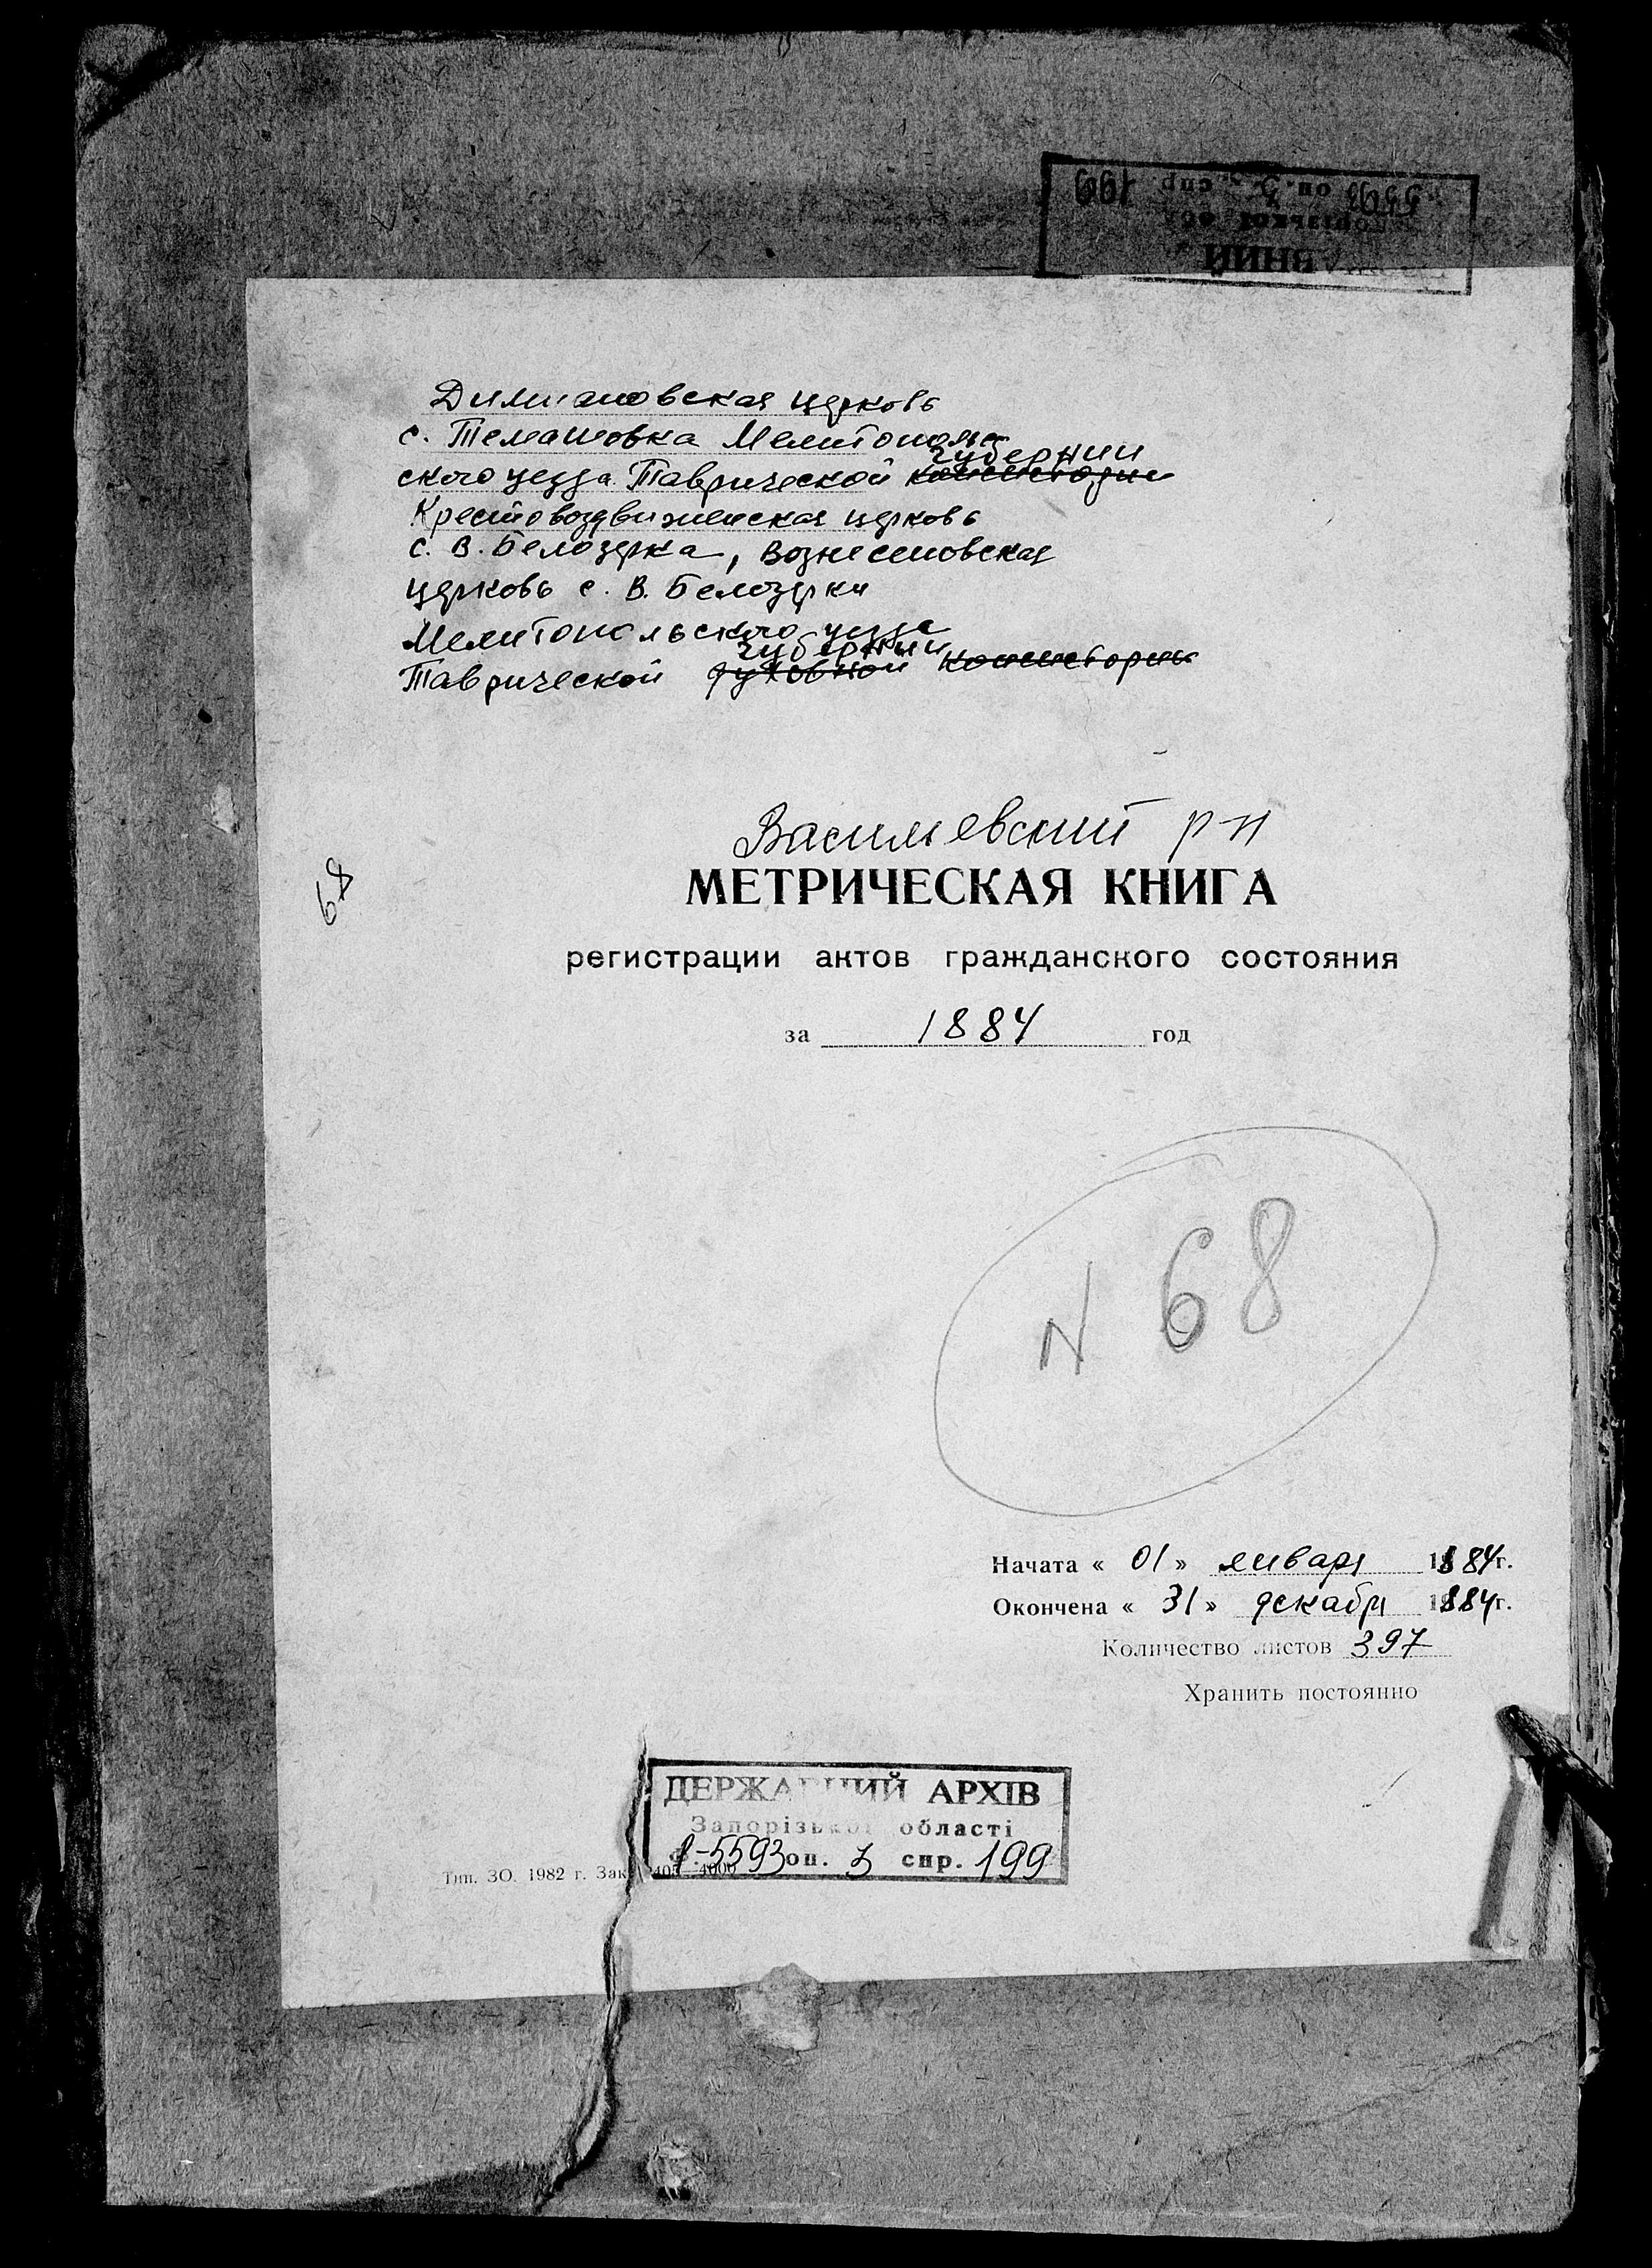 199 спр. 3 оп. 5593
Димиановская церковь
с. Темашовка Мелитополь-
губернии
ского уезда Таврической консистории
Крестовоздвиженская церковь
с. В. Белозерка, Вознесеновская
церковь с. В. Белозерки
Мелитопольского уезда
губернии
Таврической духовной консистории
Васильевский р-н
68
МЕТРИЧЕСКАЯ КНИГА
регистрации актов гражданского состояния
за 1884 год
N 68
Начата « 01 » января 1884г.
Окончена « 31 » декабря 1884г.
Количество листов 397
Хранить постоянно
ДЕРЖАВНИЙ АРХІВ
Запорізької області
Ф. Р-5593 оп. 3 спр. 199
Тип. ЗО. 1982 г. Зак. 4000